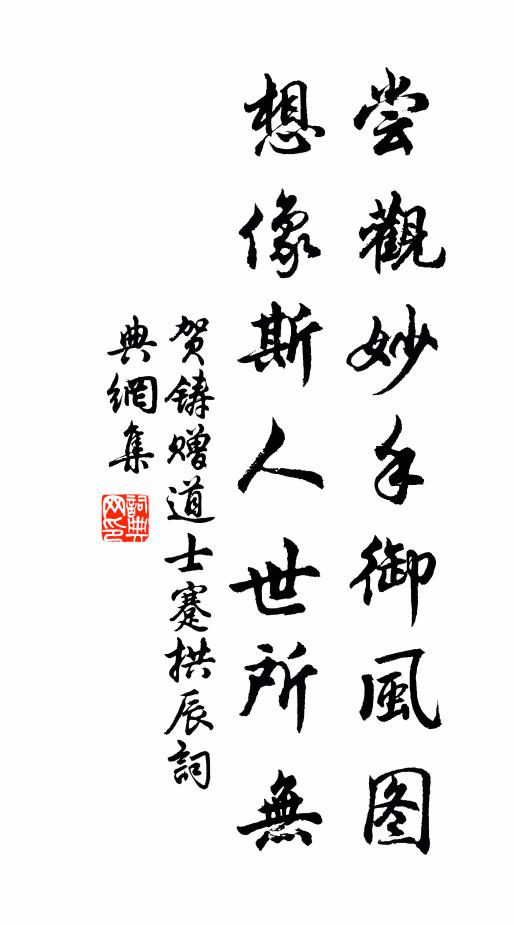 尝觀妙手御風图
想像斯人世所無
贺鑄赠道士蹇拱辰詞
典網集
詞典网印